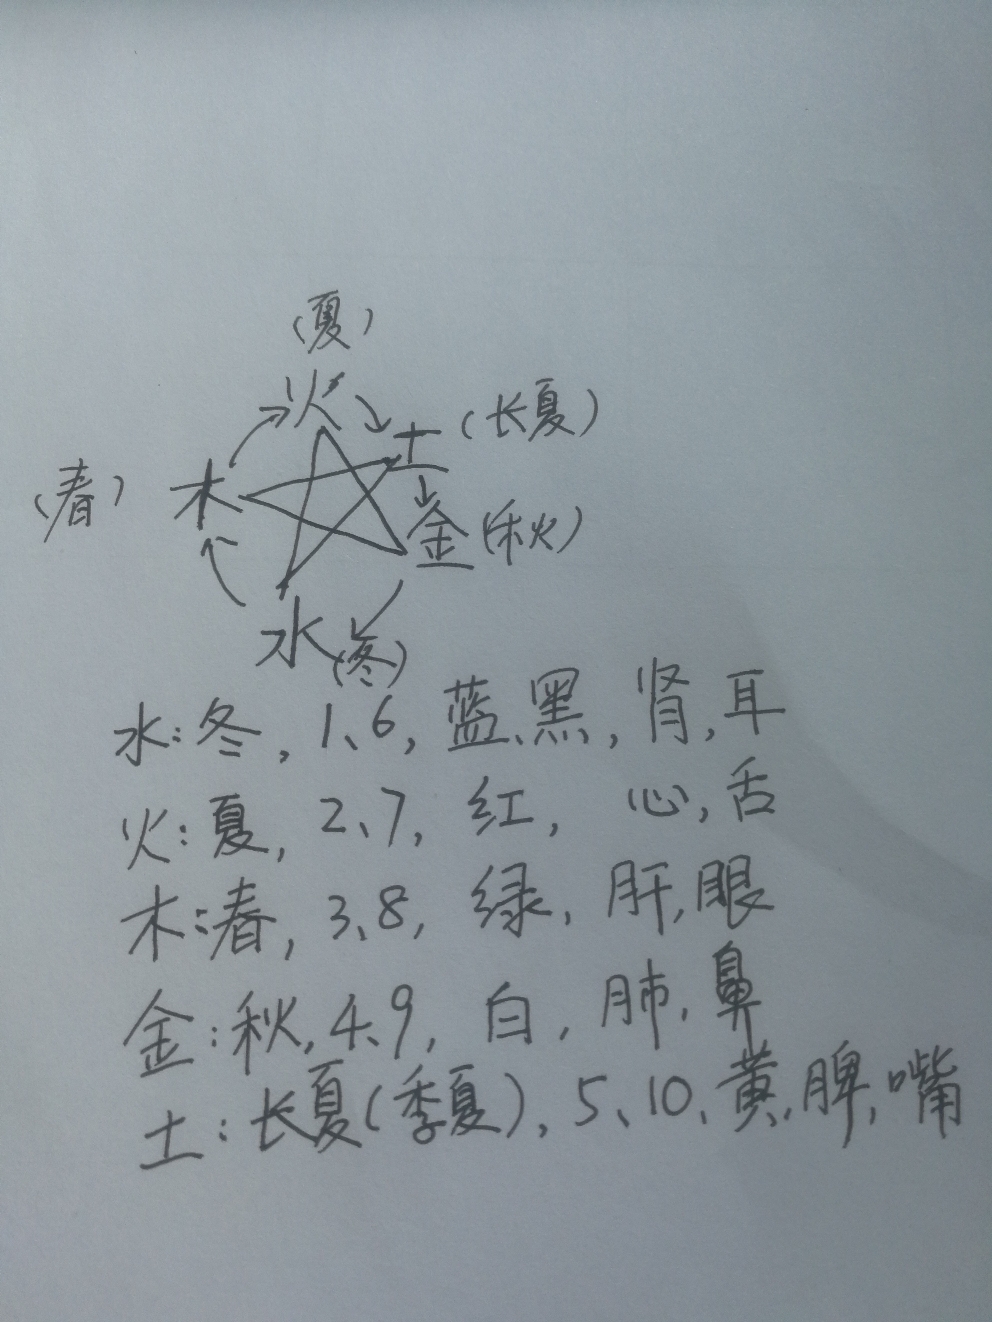 (夏)
火
土(长夏)
(春)木
金(秋)
水(冬)
水:冬,1、6,蓝、黑,肾,耳
火:夏,2、7,红,心,舌
木:春,3、8,绿,肝,眼
金:秋,4、9,白,肺,鼻
土:长夏(季夏),5、10、黄,脾,嘴